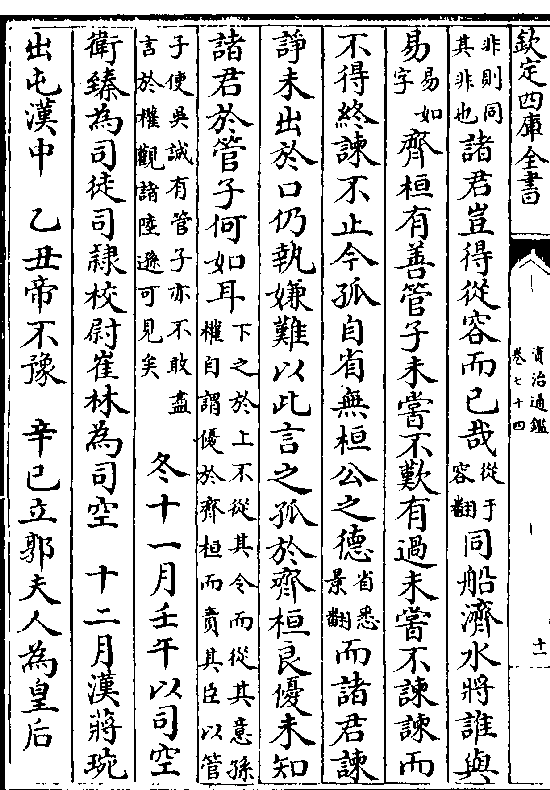 欽定四庫全書
資治通鑑
卷七十四
十一
非則同其非也諸君豈得從容而已哉從于容翻同船濟水將誰與
易易如字齊桓有善管子未嘗不歎有過未嘗不諫諫而
不得終諫不止今孤自省無桓公之德省悉景翻而諸君諫
諍未出於口仍執嫌難以此言之孤於齊桓良優未知
諸君於管子何如耳下之於上不從其令而從其意孫權自謂優於齊桓而責其臣以管
子使吳誠有管子亦不敢盡言於權觀諸陸遜可見矣 冬十一月壬午以司空
衛臻為司徒司隸校尉崔林為司空 十二月漢蔣琬
出屯漢中 乙丑帝不豫 辛巳立郭夫人為皇后